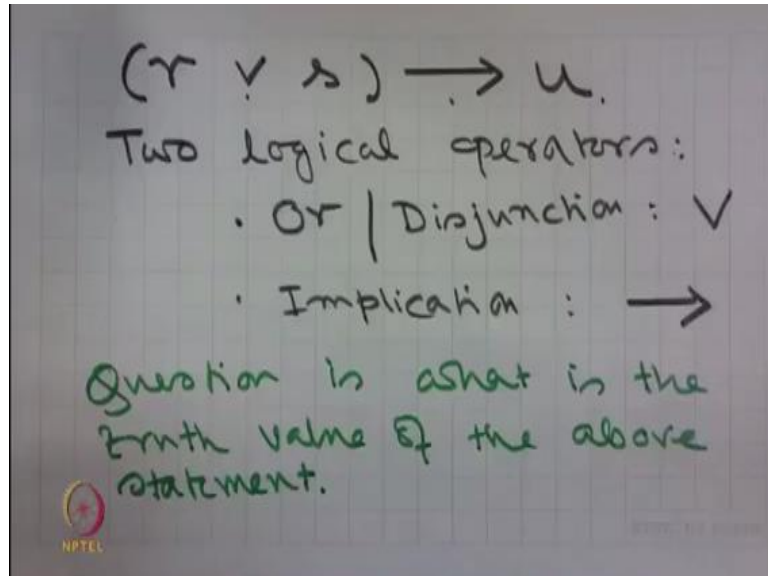 (r ∨ s) ⟶ u.
Two logical operators:
· Or | Disjunction : ∨
· Implication : ⟶
Question is what is the
truth value of the above
statement.
NPTEL